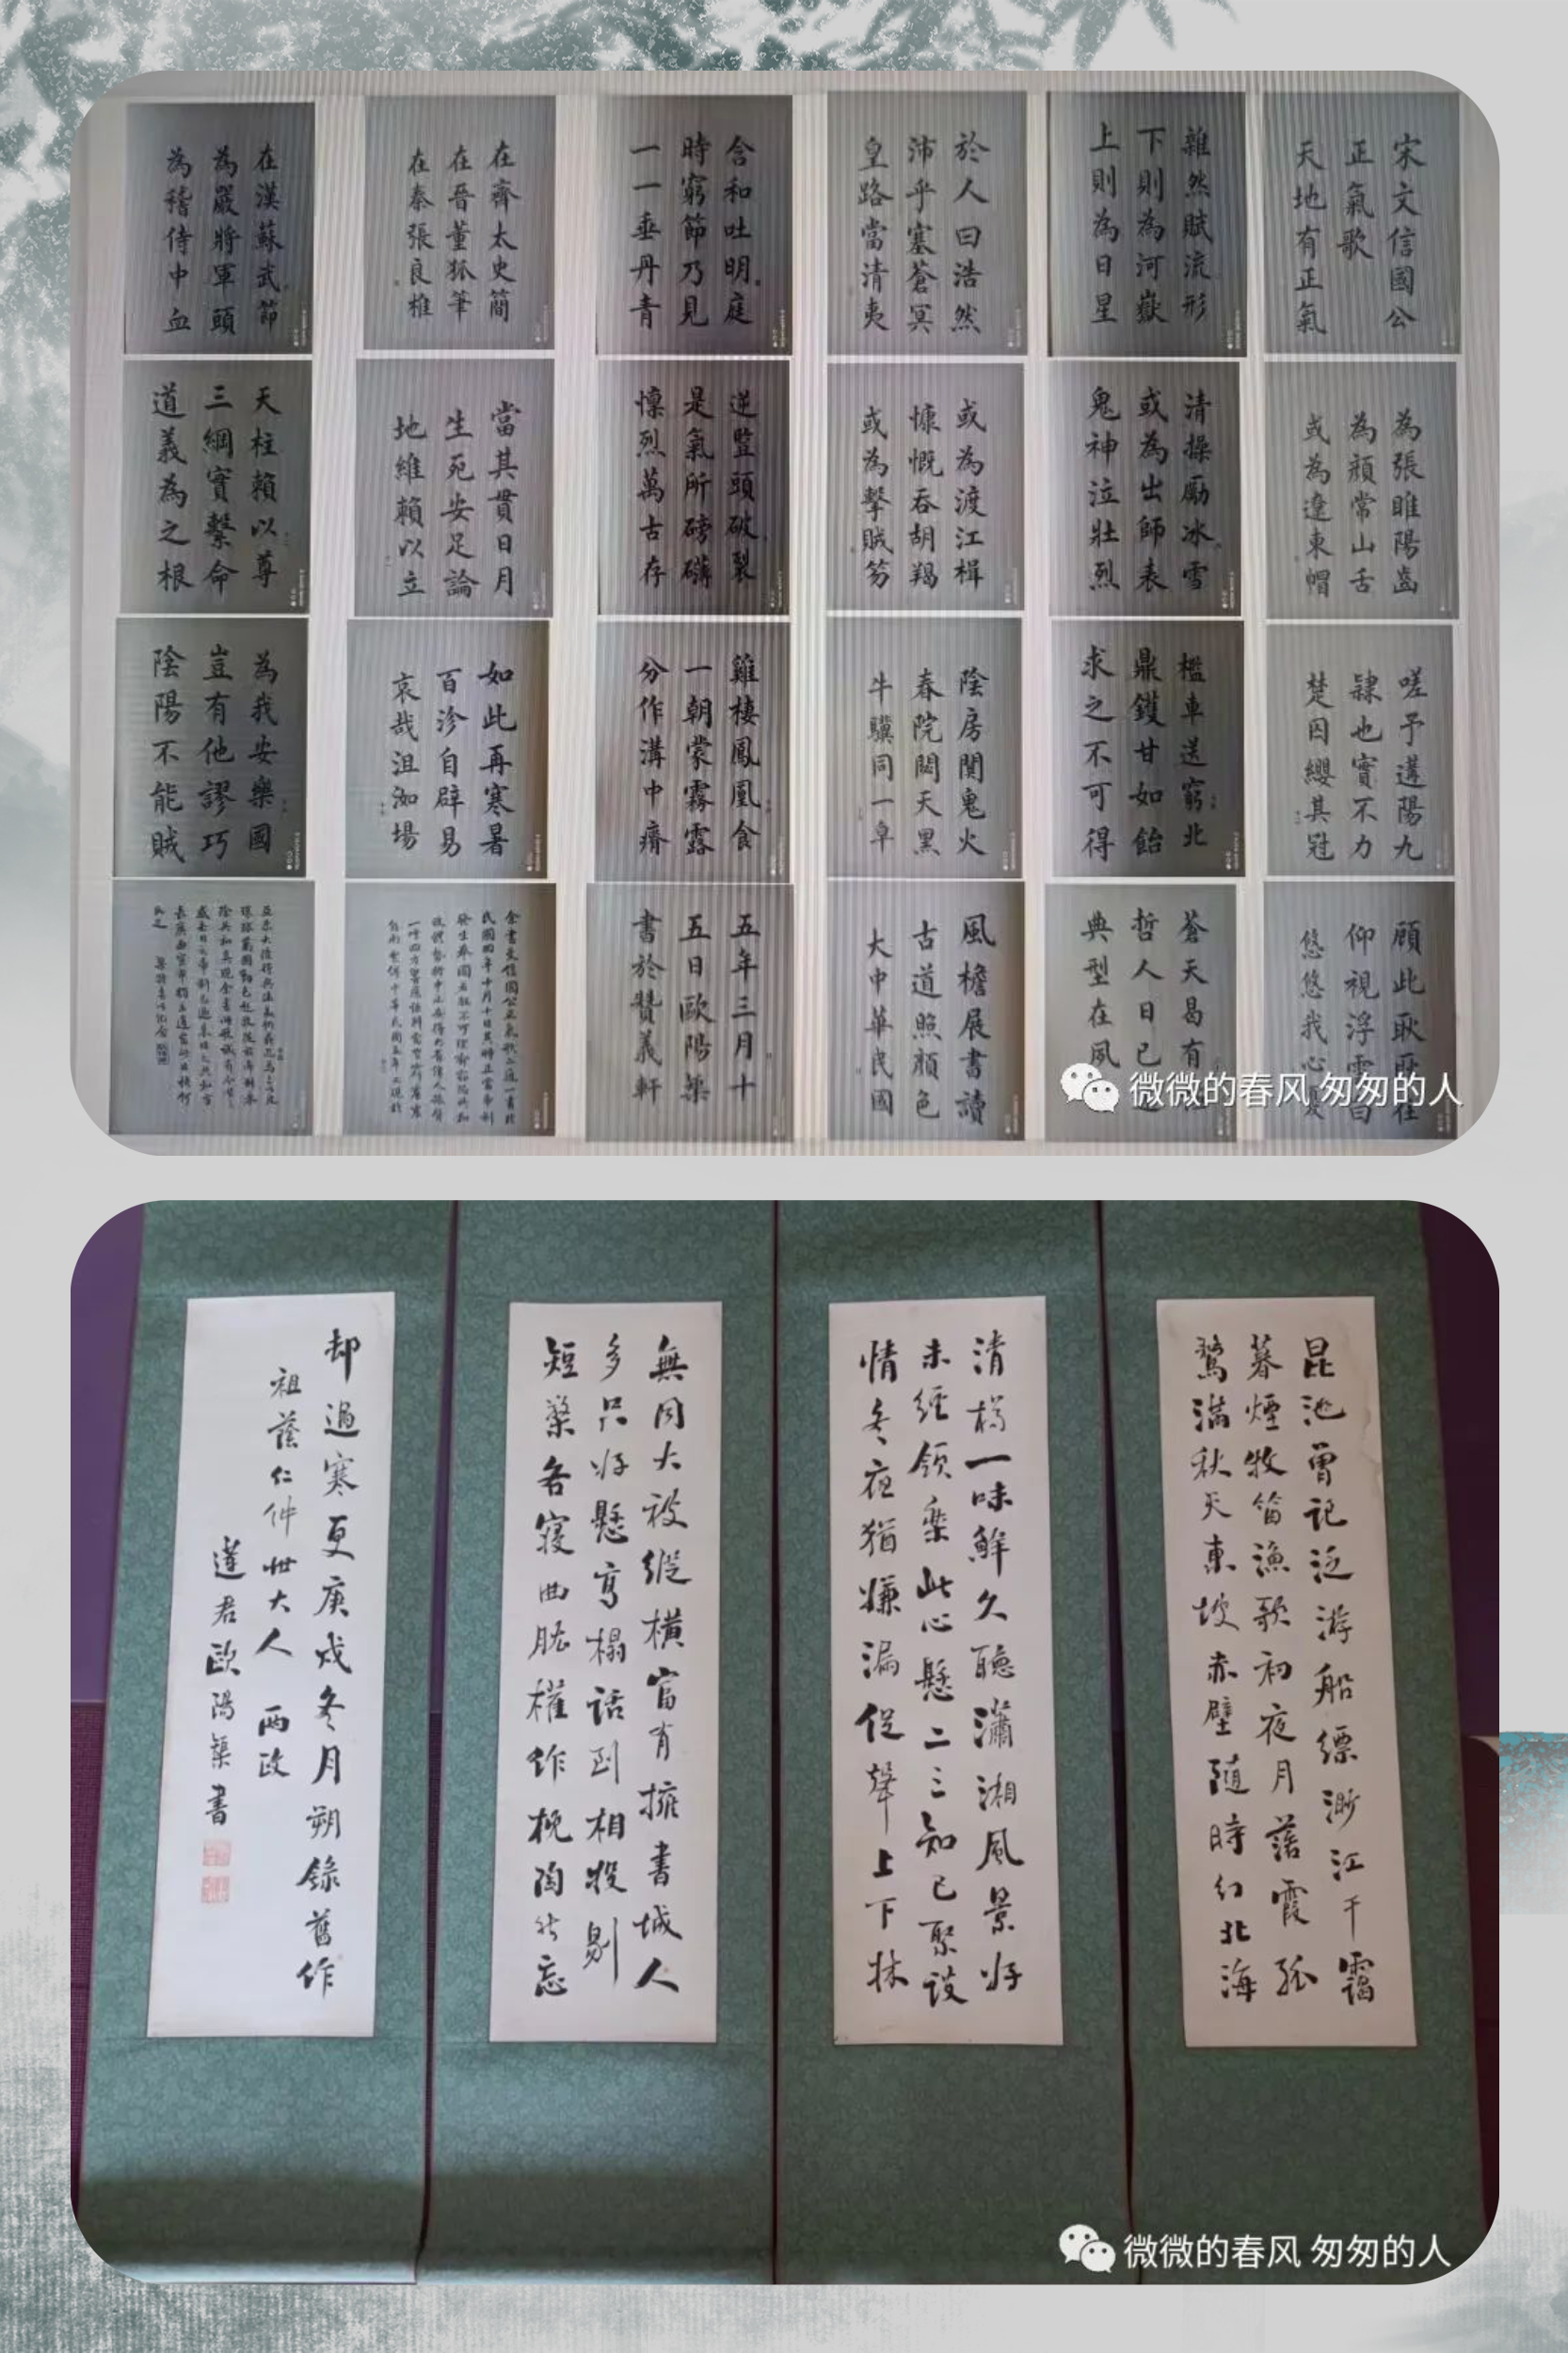 宋文信國公
正氣歌
天地有正氣
雜然賦流形
下則為河嶽
上則為日星
於人曰浩然
沛乎塞蒼冥
皇路當清夷
含和吐明庭
時窮節乃見
一一垂丹青
在齊太史簡
在晉董狐筆
在秦張良椎
在漢蘇武節
為嚴將軍頭
為稽侍中血
為張睢陽齒
為顏常山舌
或為遼東帽
清操勵冰雪
或為出師表
鬼神泣壯烈
或為渡江楫
慷慨吞胡羯
或為擊賊笏
逆豎頭破裂
是氣所磅礴
懍烈萬古存
當其貫日月
生死安足論
地維賴以立
天柱賴以尊
三綱實繫命
道義為之根
嗟予遘陽九
隸也實不力
楚囚纓其冠
檻車送窮北
鼎鑊甘如飴
求之不可得
陰房闃鬼火
春院閟天黑
牛驥同一皁
雞棲鳳凰食
一朝蒙霧露
分作溝中瘠
如此再寒暑
百沴自辟易
哀哉沮洳場
為我安樂國
豈有他謬巧
陰陽不能賊
顧此耿
仰視浮雲白
悠悠我心憂
蒼天曷有
哲人日已
典型在夙
風檐展書讀
古道照顏色
大中華民國
五年三月十
五日歐陽築
書於贊義軒
余書文信國公正氣歌二過一書於
民國四年十月十日其時正當帝制
發生舉國若狂不可理喻
微微的春风 匆匆的人
昆池曾記泛游船縹渺江干靄
暮煙牧笛漁歌初夜月落霞孤
鶩滿秋天東坡赤壁隨時幻北海
清樽一味鮮久聽瀟湘風景好
未經領樂此心懸二三知己聚談
情冬夜猶嫌漏促聲上下牀
無同大被縱橫富有擁書城人
多只好懸高榻話到相投剔
短檠各寢曲肱權作枕陶然忘
却過寒更庚戌冬月朔錄舊作
祖蔭仁仲世大人 兩政
達君歐陽築書
微微的春风 匆匆的人